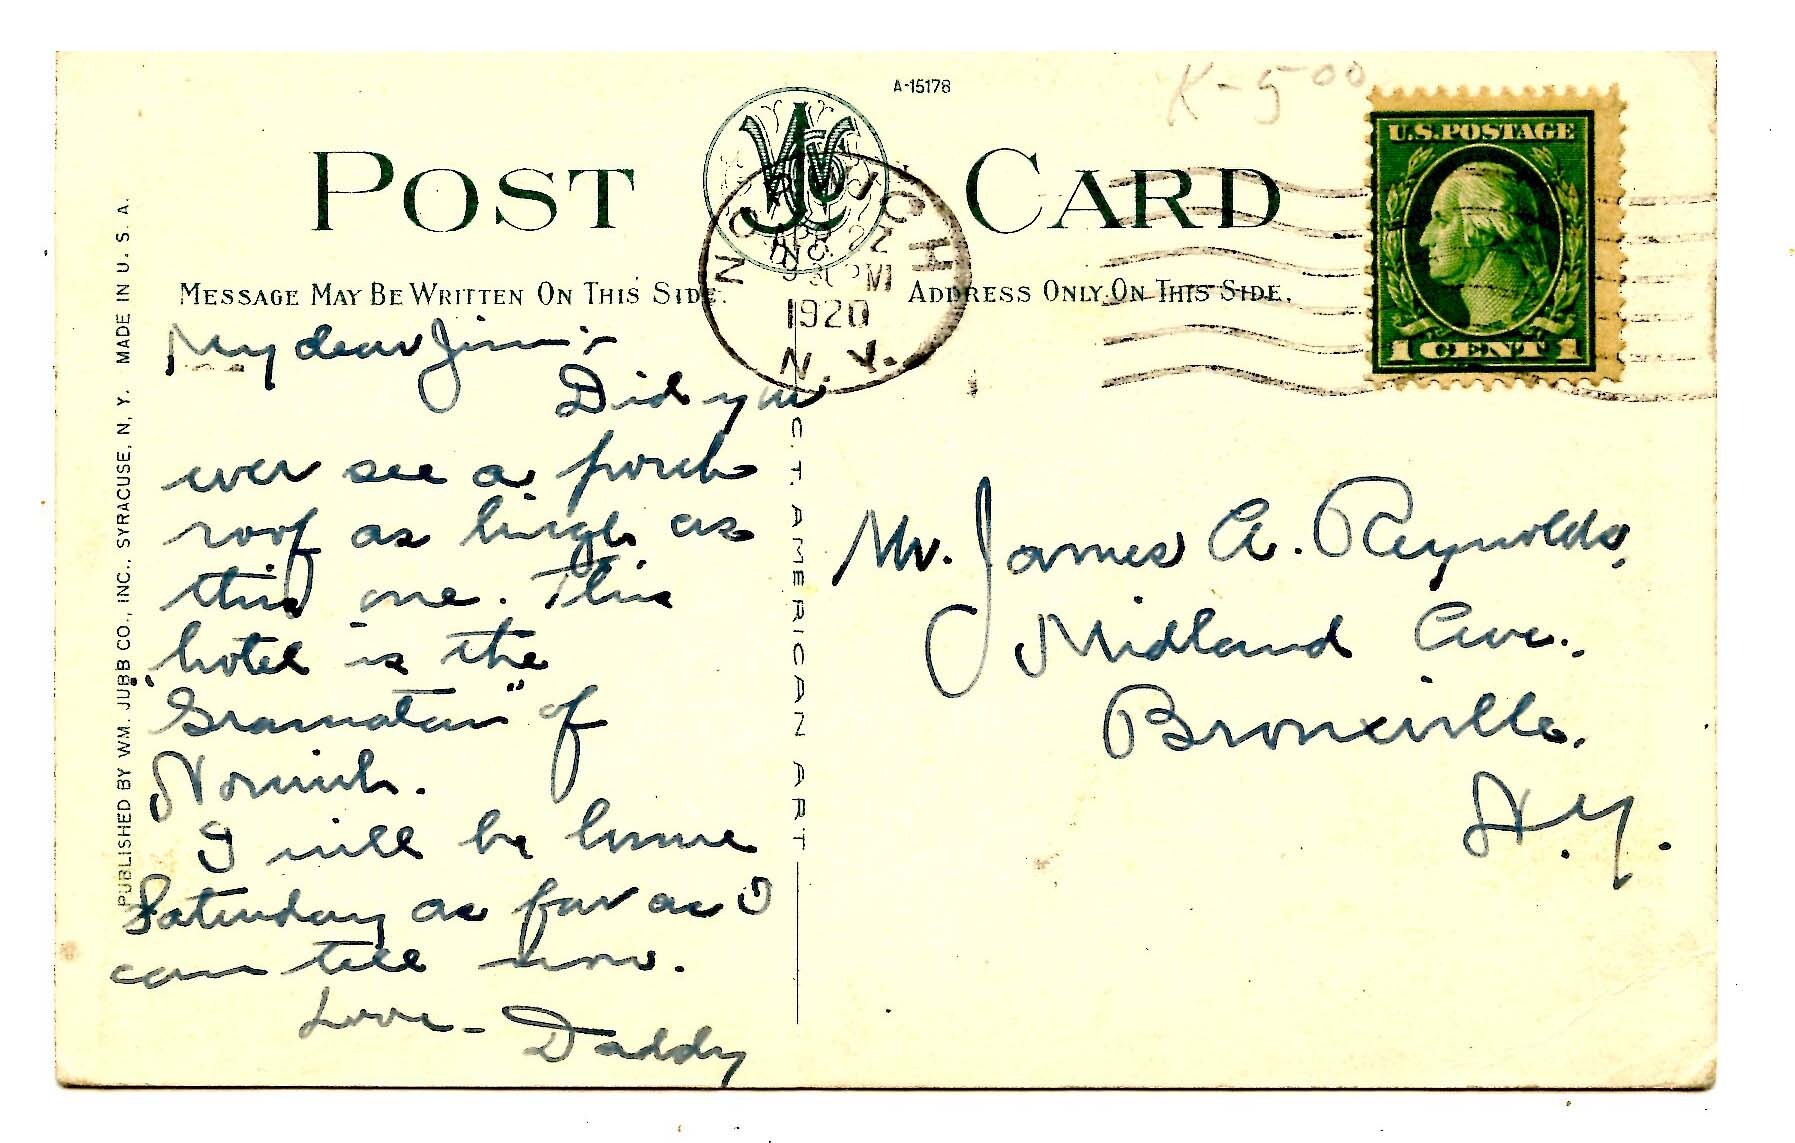 A-15178
K-5 00
POST CARD
U.S. POSTAGE
1 CENT 1
NORWICH
APR 22
PM
1920
N.Y.
MESSAGE MAY BE WRITTEN ON THIS SIDE.
ADDRESS ONLY ON THIS SIDE.
PUBLISHED BY WM. JUBB CO., INC., SYRACUSE, N. Y. MADE IN U. S. A.
C.T. AMERICAN ART
My dear Jim:-
Did you
ever see a porch
roof as high as
this one. This
hotel is the
"Gramatan" of
Norwich.
I will be home
Saturday as far as I
can tell now.
Love - Daddy
Mr. James A. Reynolds,
Midland Ave.,
Bronxville.
N.Y.